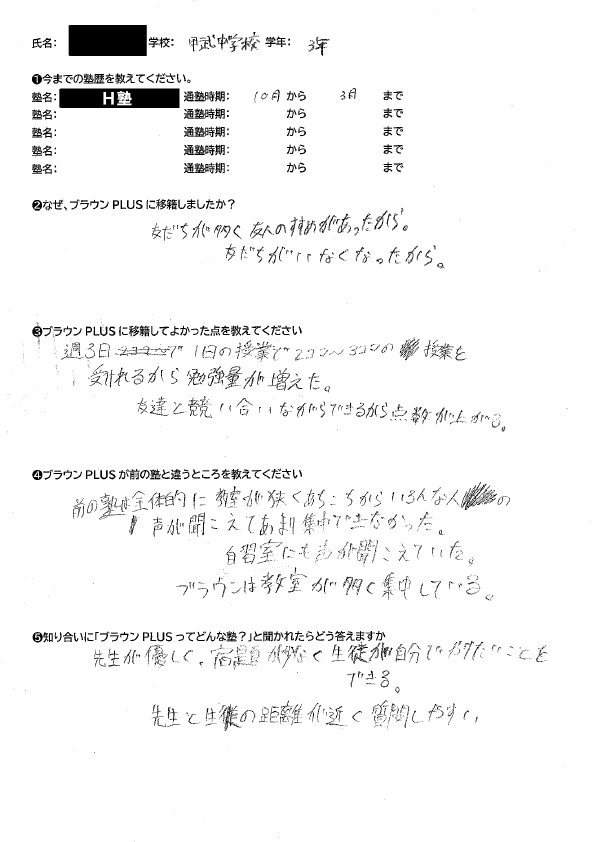 氏名： 学校： 甲武中学校 学年： 3年
❶今までの塾歴を教えてください。
塾名： H塾 通塾時期： 10月 から 3月 まで
塾名： 通塾時期： から まで
塾名： 通塾時期： から まで
塾名： 通塾時期： から まで
塾名： 通塾時期： から まで
❷なぜ、ブラウン PLUS に移籍しましたか？
友だちが多く友人のすすめがあったから。
友だちがいなくなったから。
❸ブラウン PLUS に移籍してよかった点を教えてください
週3日 で 1日の授業で2コマ〜3コマの 授業を
受けれるから勉強量が増えた。
友達と競い合いながらできるから点数が上がる。
❹ブラウン PLUS が前の塾と違うところを教えてください
前の塾は全体的に教室が狭くあちこちからいろんな人 の
声が聞こえてあまり集中できなかった。
自習室にも声が聞こえていた。
ブラウンは教室が多く集中している。
❺知り合いに「ブラウン PLUS ってどんな塾？」と聞かれたらどう答えますか
先生が優しく、宿題が少なく生徒が自分でやりたいことを
できる。
先生と生徒の距離が近く質問しやすい